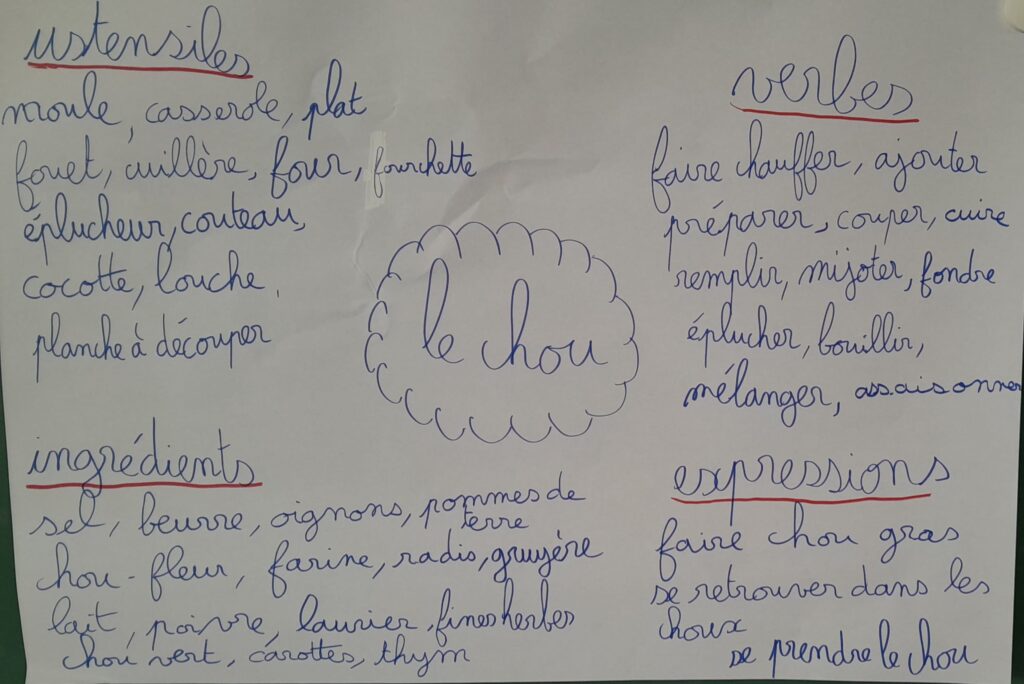 ustensiles
moule, casserole, plat
fouet, cuillère, four, fourchette
éplucheur, couteau,
cocotte, louche,
planche à découper
verbes
faire chauffer, ajouter
préparer, couper, cuire
remplir, mijoter, fondre
éplucher, bouillir,
mélanger, assaisonner
le chou
ingrédients
sel, beurre, oignons, pommes de
terre
chou-fleur, farine, radis, gruyère
lait, poivre, laurier, fines herbes
chou vert, carottes, thym
expressions
faire chou gras
se retrouver dans les
choux
se prendre le chou